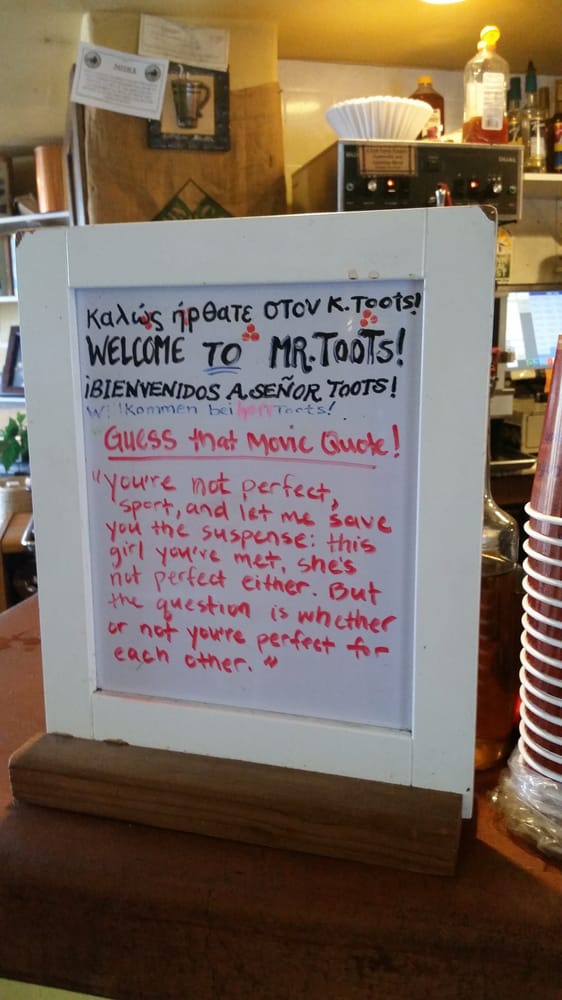 Καλώς ήρθατε στον Κ. Toots!
WELCOME TO MR. TOOTS!
¡BIENVENIDOS A SEÑOR TOOTS!
Willkommen bei Herr Toots!
Guess that Movie Quote!
"You're not perfect,
sport, and let me save
you the suspense: this
girl you've met, she's
not perfect either. But
the question is whether
or not you're perfect for
each other."